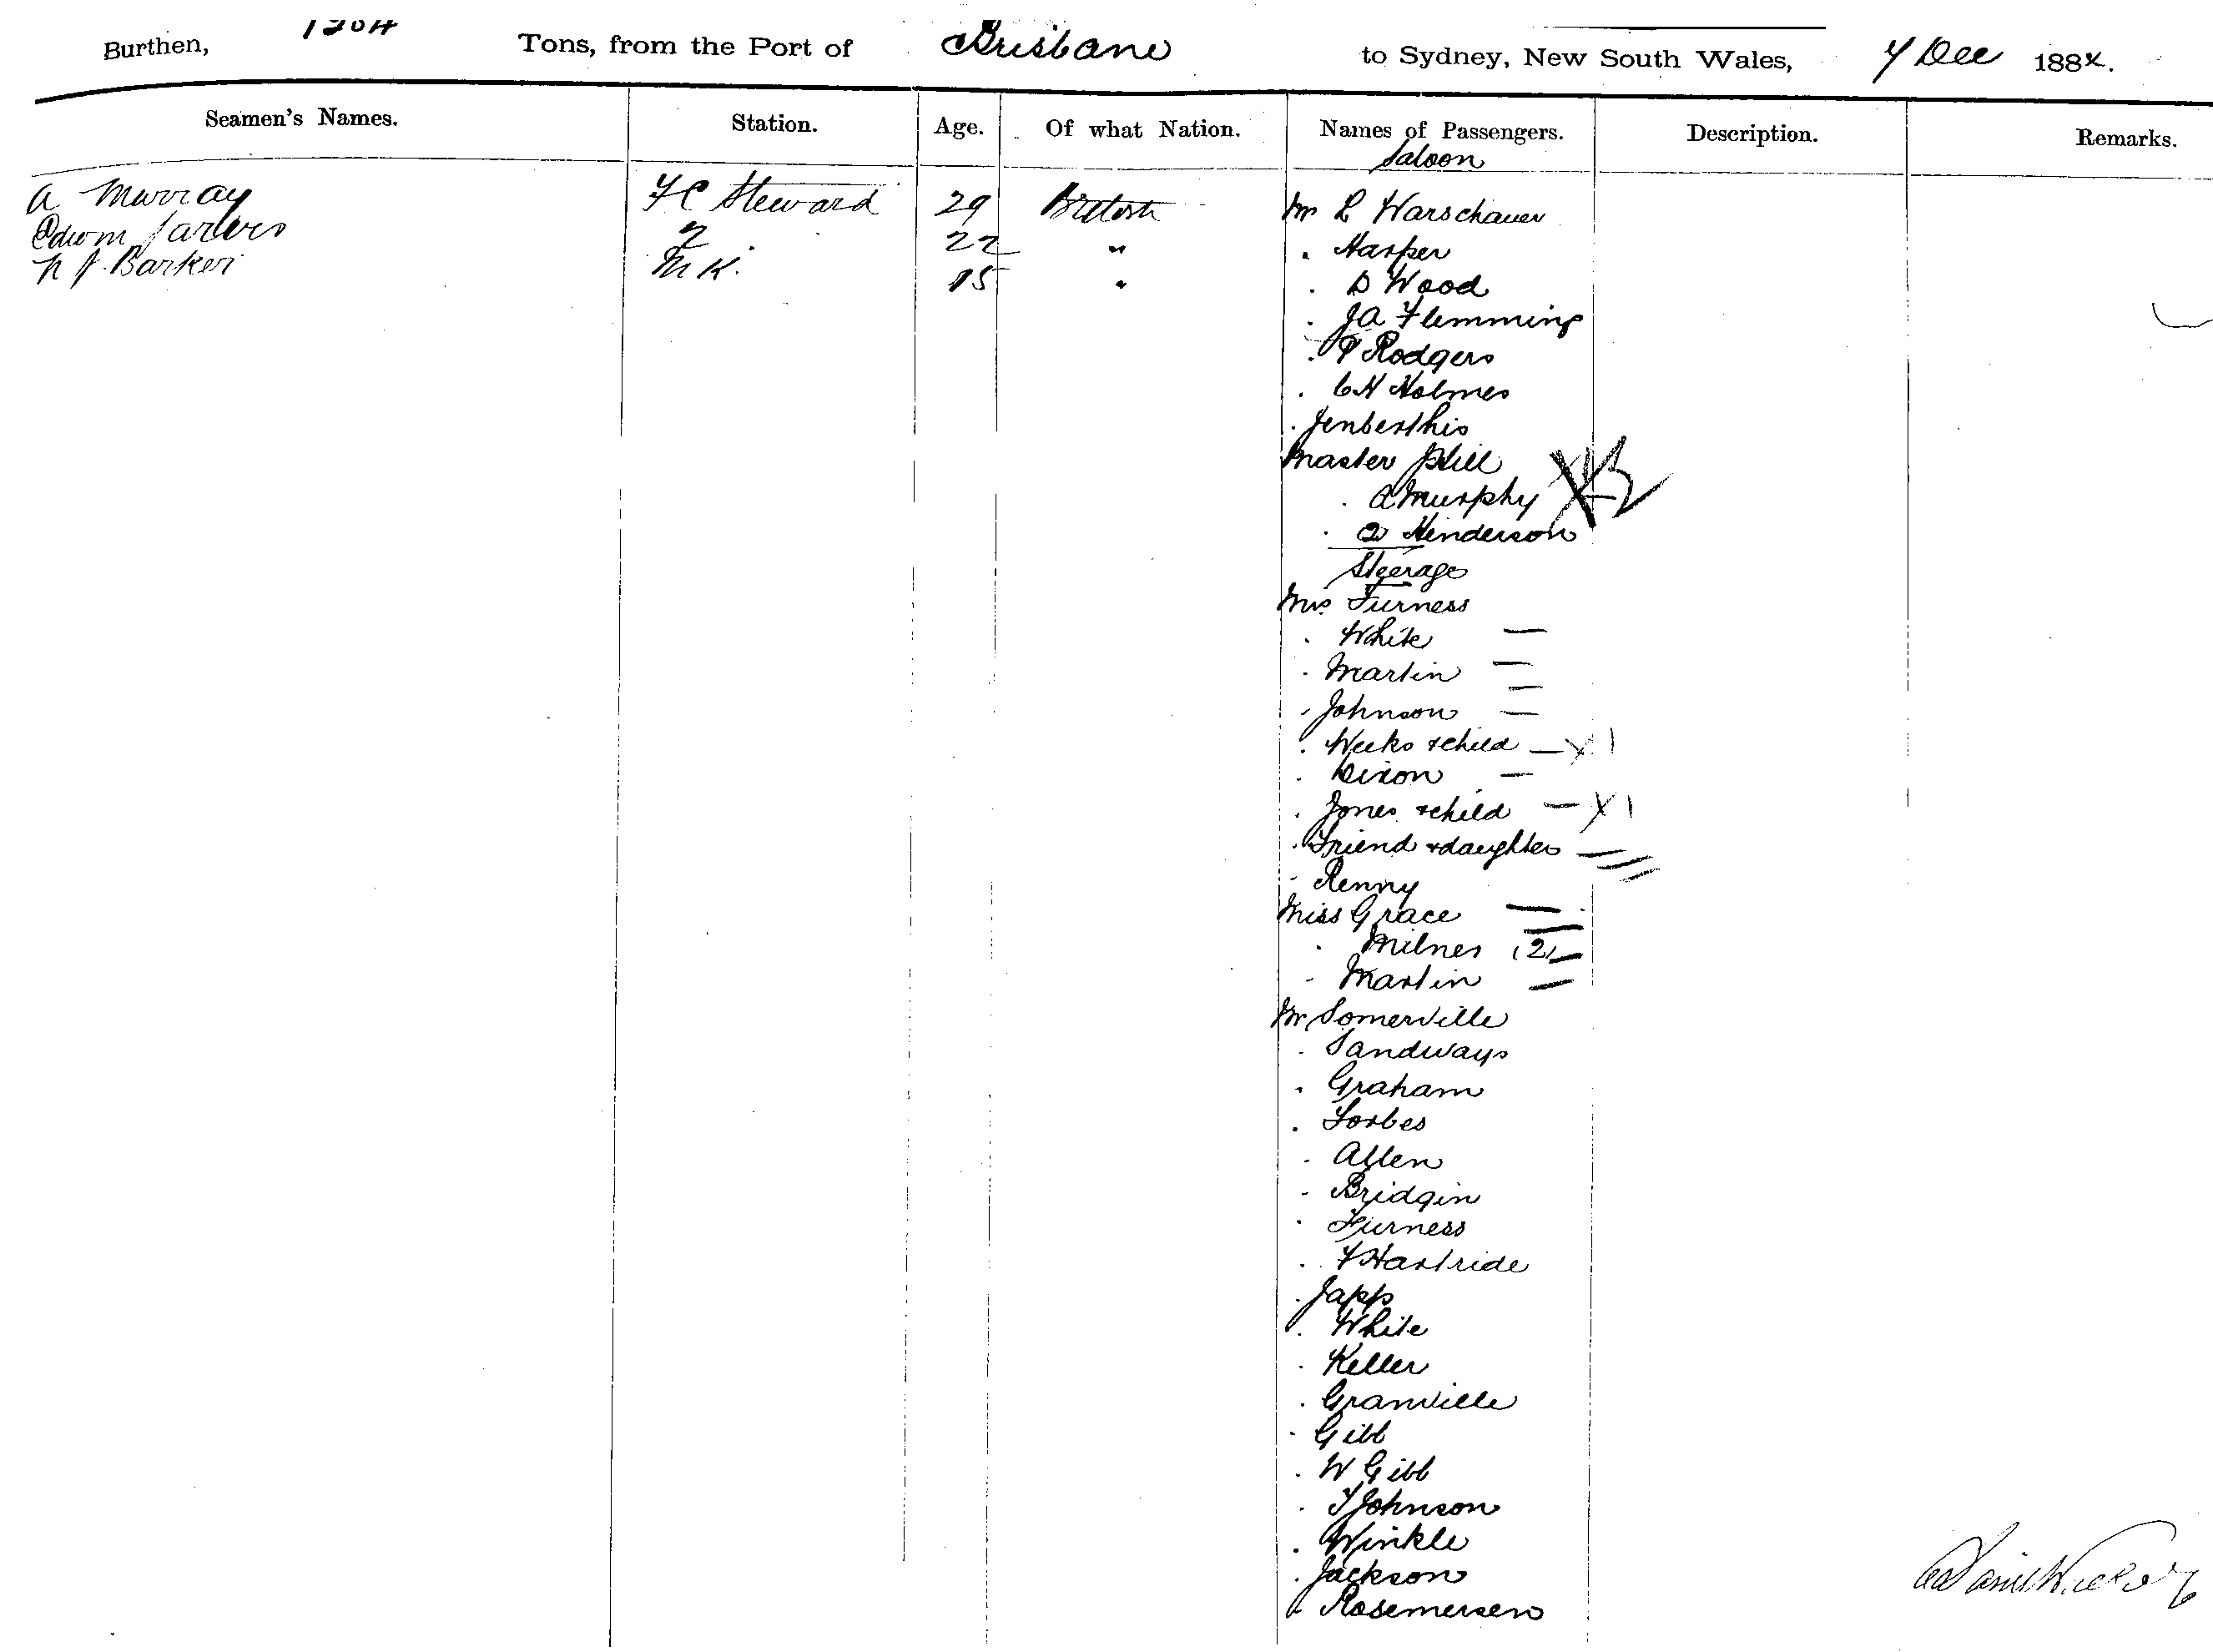 Burthen, Tons, from the Port of Brisbane to Sydney, New South Wales, Dec 188
Seamen's Names. Station. Age. Of what Nation. Names of Passengers. Description. Remarks.
Saloon
A Murray Steward 29 British Mr L Warschauer
Edwin 2 22 " . Harper
Barker M K. 15 " . D Wood
. JA Flemming
. P Rodgers
. CH Holmes
. Jenberthis
Master Hill
. A Murphy
. Henderson
Steerage
Mrs Furness
. White —
. Martin —
. Johnson —
. Weeks & child — X 1
. Dixon —
. Jones & child — X 1
. Friend & daughter —
. Renny
Miss Grace —
. Milner (2) —
. Martin —
Mr Somerville
. Sandways
. Graham
. Forbes
. Allen
. Bridgin
. Furness
. F Hartride
. Japp
. White
. Keller
. Granville
. Gibb
. W Gibb
. T Johnson
. Winkle
. Jackson
. Rosemersen